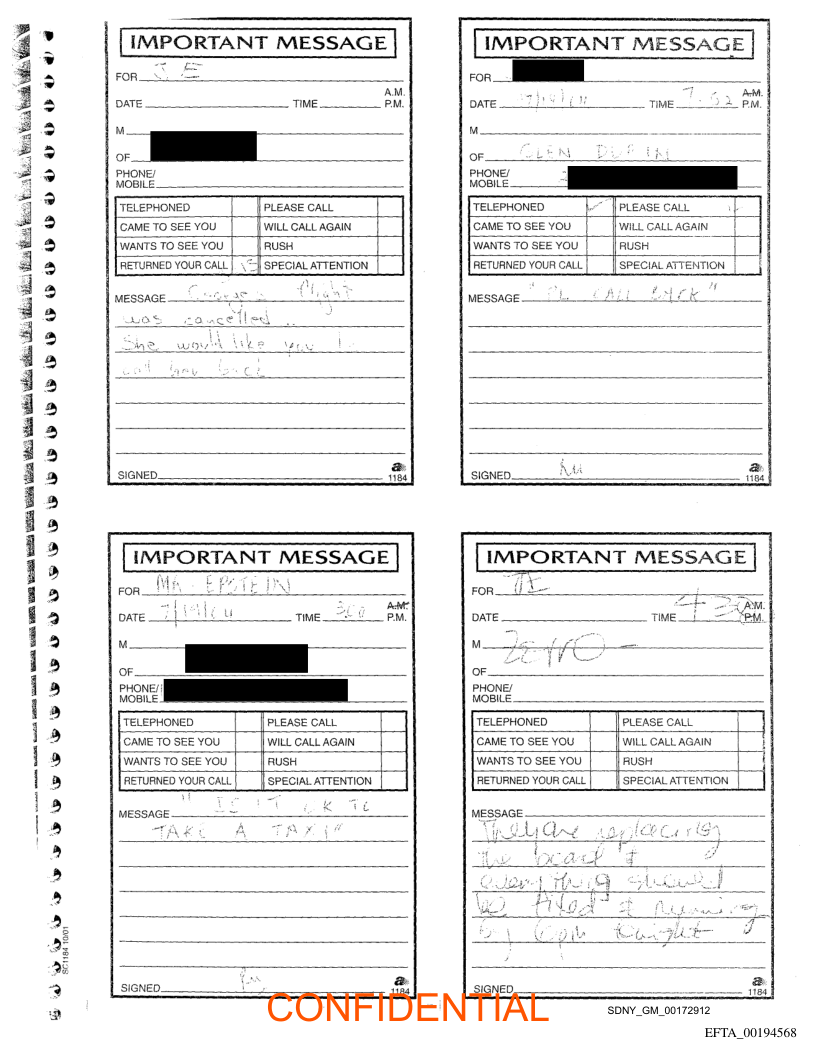 IMPORTANT MESSAGE
FOR J.E
A.M.
DATE TIME P.M.
M
OF
PHONE/
MOBILE
TELEPHONED PLEASE CALL
CAME TO SEE YOU WILL CALL AGAIN
WANTS TO SEE YOU RUSH
RETURNED YOUR CALL SPECIAL ATTENTION
MESSAGE flight
was cancelled..
She would like you to
call back
SIGNED
a
1184
IMPORTANT MESSAGE
FOR
A.M.
DATE 7/19/04 TIME 7.52 P.M.
M
OF GLEN DUBIN
PHONE/
MOBILE
TELEPHONED ✓ PLEASE CALL
CAME TO SEE YOU WILL CALL AGAIN
WANTS TO SEE YOU RUSH
RETURNED YOUR CALL SPECIAL ATTENTION
MESSAGE "PL CALL BACK"
SIGNED
a
1184
IMPORTANT MESSAGE
FOR MR. EPSTEIN
A.M.
DATE 7/19/04 TIME 3:00 P.M.
M
OF
PHONE/
MOBILE
TELEPHONED PLEASE CALL
CAME TO SEE YOU WILL CALL AGAIN
WANTS TO SEE YOU RUSH
RETURNED YOUR CALL SPECIAL ATTENTION
MESSAGE "IS IT OK TO
TAKE A TAXI"
SIGNED
a
1184
IMPORTANT MESSAGE
FOR JE
A.M.
DATE TIME 4:30 P.M.
M
OF
PHONE/
MOBILE
TELEPHONED PLEASE CALL
CAME TO SEE YOU WILL CALL AGAIN
WANTS TO SEE YOU RUSH
RETURNED YOUR CALL SPECIAL ATTENTION
MESSAGE
They are replacing
the board &
everything should
be fixed & running
by 6pm tonight
SIGNED
a
1184
SC1184 10/01
CONFIDENTIAL
SDNY_GM_00172912
EFTA_00194568